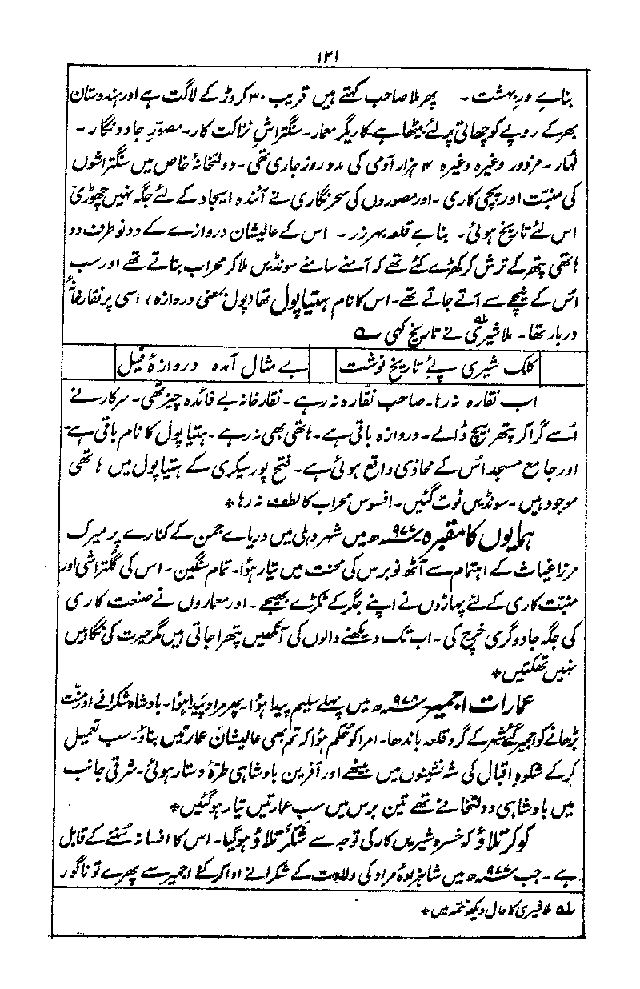 ۱۲۱
بنائے در بہشت ۔ پھر ملا صاحب کہتے ہیں قریب ۳۰ کروڑ کے لاگت ہے اور ہندوستان
بھر کے روپے کو چھاتی پر لئے بیٹھا ہے کاریگر معمار۔ سنگتراش نزاکت کار۔ مصور جادو نگار۔
لہار۔ مزدور وغیرہ وغیرہ ۴ ہزار آدمی کی مدد روز جاری تھی۔ دولتخانۂ خاص میں سنگتراشوں
کی منبت اور پچی کاری۔ اور مصوروں کی سحر نگاری نے آئندہ ایجاد کے لئے جگہ نہیں چھوڑی
اس لئے تاریخ ہوئی۔ بنائے قلعہ بہر زر۔ اس کے عالیشان دروازے کے دونو طرف دو
ہاتھی پتھر کے ترش کر کھڑے کئے تھے کہ آمنے سامنے سونڈیں ملا کر محراب بناتے تھے اور سب
اس کے نیچے سے آتے جاتے تھے۔ اس کا نام ہتیا پول تھا (پول بمعنی دروازہ) اسی پر نقار خانۂ
دربار تھا۔ ملا شیری نے تاریخ کہی ے
کلک شیری پئے تاریخ نوشت بے مثال آمدہ دروازۂ فیل
اب نقارہ نہ رہا۔ صاحب نقارہ نہ رہے۔ نقار خانہ بے فائدہ چیز تھی۔ سرکار نے
اسے گرا کر پتھر بیچ ڈالے۔ دروازہ باقی ہے۔ ہاتھی بھی نہ رہے۔ ہتیا پول کا نام باقی ہے
اور جامع مسجد اس کے محاذی واقع ہوئی ہے۔ فتح پور سیکری کے ہتیا پول میں ہاتھی
موجود ہیں۔ سونڈیں ٹوٹ گئیں۔ افسوس محراب کا لطف نہ رہا *
ہمایوں کا مقبرہ ۹۷۷ھ میں شہر دہلی میں دریائے جمن کے کنارے پر میرک
مرزا غیاث کے اہتمام سے آٹھ نو برس کی محنت میں تیار ہوا۔ تمام سنگین۔ اس کی گلتراشی اور
منبت کاری کے لئے پہاڑوں نے اپنے جگر کے ٹکڑے بھیجے۔ اور معماروں نے صنعت کاری
کی جگہ جادوگری خرچ کی۔ اب تک دیکھنے والوں کی آنکھیں پتھرا جاتی ہیں مگر حیرت کی نگاہیں
نہیں تھکتیں *
عمارات اجمیر ۹۷۷ھ میں پہلے سلیم پیدا ہوا۔ پھر مراد پیدا ہوا۔ بادشاہ شکرانے اور منت
بڑھانے کو اجمیر گئے شہر کے گرد قلعہ باندھا۔ امرا کو حکم ہوا کہ تم بھی عالیشان عمارتیں بناؤ۔ سب تعمیل
کر کے شکوہ اقبال کی شہ نشینوں میں بیٹھے اور آفرین بادشاہی طرۂ دستار ہوئی۔ شرقی جانب
میں بادشاہی دولتخانے تھے تین برس میں سب عمارتیں تیار ہو گئیں *
کوکر تلاؤ کو خسرو شیریں کار کی توجہ سے شکر تلاؤ ہو گیا۔ اس کا افسانہ سننے کے قابل
ہے۔ جب ۹۷۷ھ میں شاہزادہ مراد کی ولادت کے شکرانے ادا کر کے اجمیر سے پھرے تو ناگور
لہ ملا شیری کا حال دیکھو تتمہ میں *